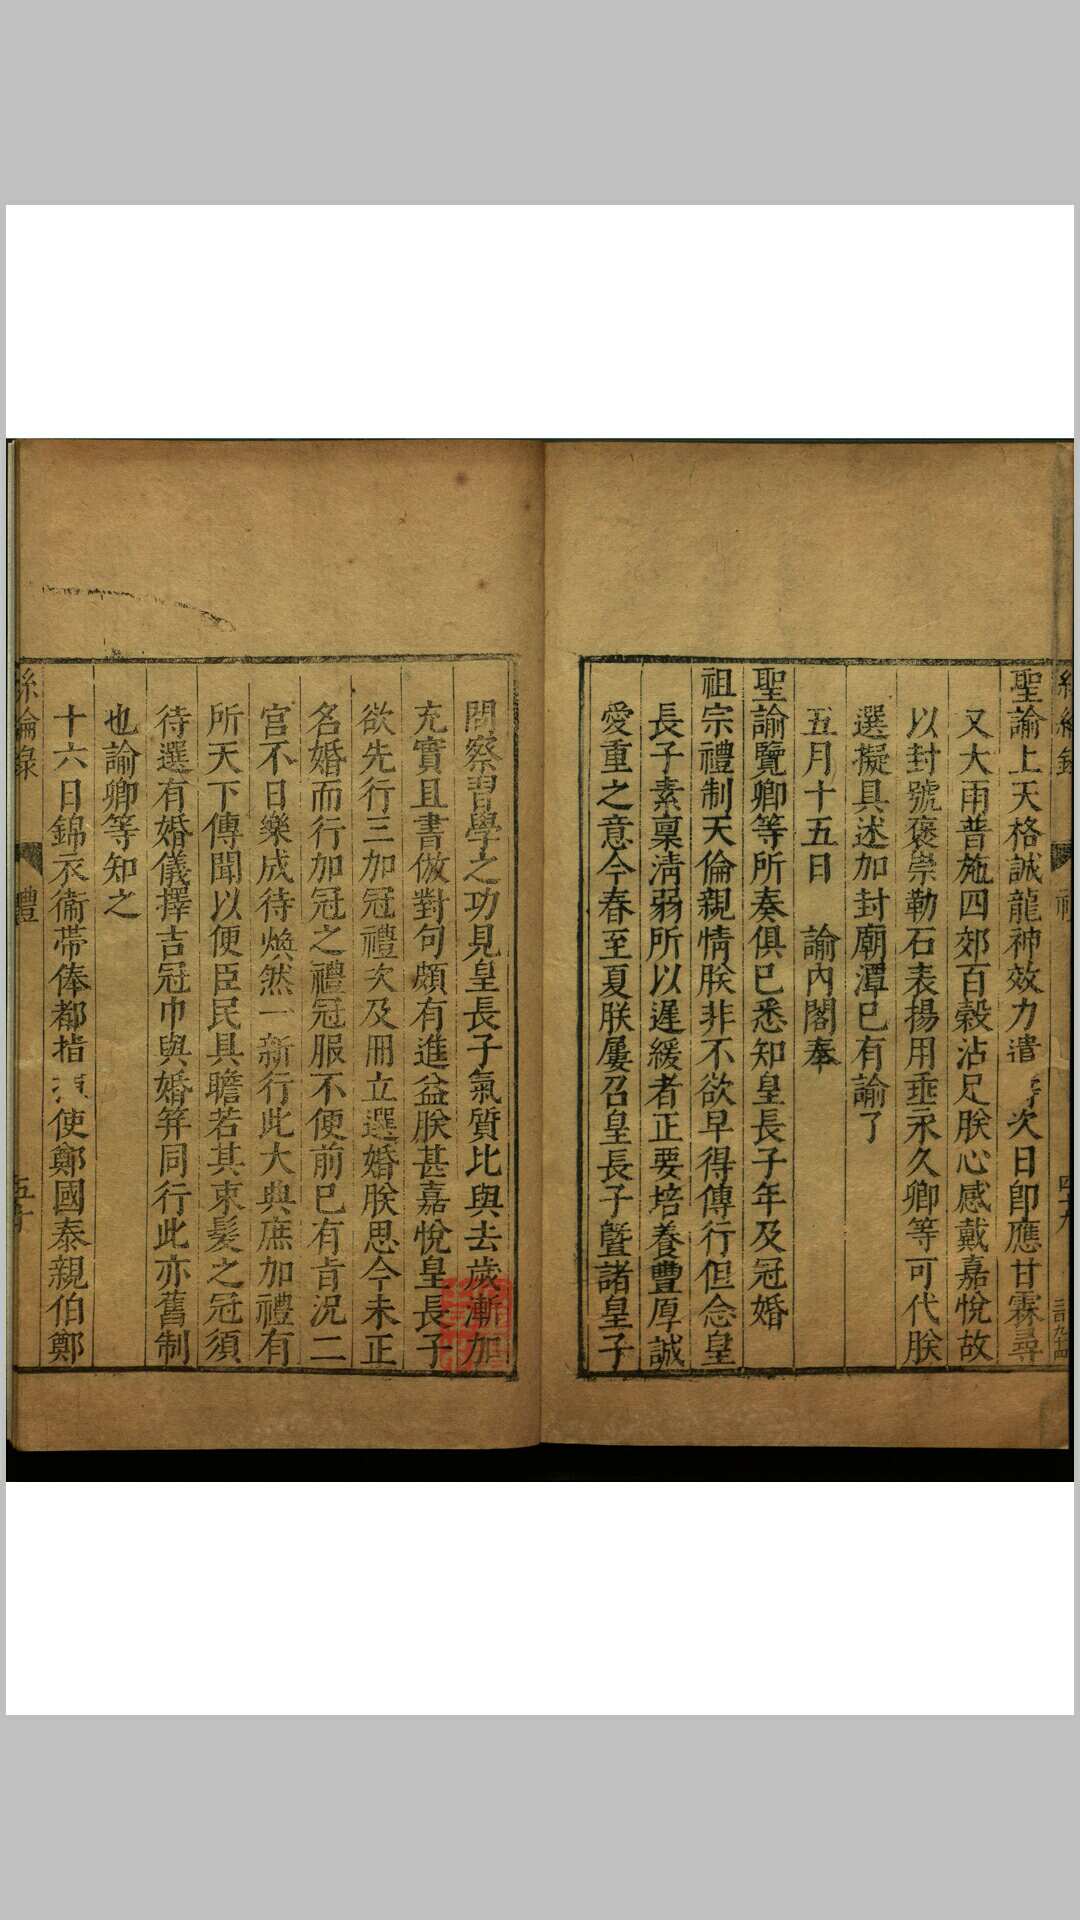 聖諭上天格誠龍神效力遣 次日卽應甘霖尋
又大雨普施四郊百榖沾足朕心感戴嘉悅故
以封號褒崇勒石表揚用垂永久卿等可代朕
選擬具述加封廟潭已有諭了
五月十五日 諭內閣奉
聖諭覽卿等所奏俱已悉知皇長子年及冠婚
祖宗禮制天倫親情朕非不欲早得傳行但念皇
長子素稟淸弱所以遲緩者正要培養豐厚誠
愛重之意今春至夏朕屢召皇長子曁諸皇子
間察習學之功見皇長子氣質比與去歲漸加
充實且書倣對句頗有進益朕甚嘉悅皇長子
欲先行三加冠禮次及冊立選婚朕思今未正
名婚而行加冠之禮冠服不便前已有旨況二
宮不日樂成待煥然一新行此大典庶加禮有
所天下傳聞以便臣民具瞻若其束髮之冠須
待選有婚儀擇吉冠巾與婚筓同行此亦舊制
也諭卿等知之
十六日錦衣衞帶俸都指 使鄭國泰親伯鄭
絲綸錄 禮